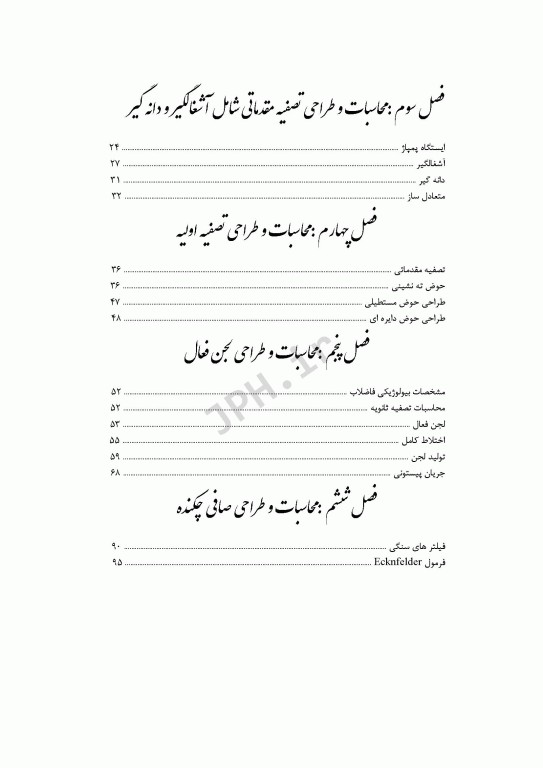 فصل سوم :محاسبات و طراحی تصفیه مقدماتی شامل آشغالگیر و دانه گیر
ایستگاه پمپاژ ۲۴
آشغالگیر ۲۷
دانه گیر ۳۱
متعادل ساز ۳۲
فصل چهارم :محاسبات و طراحی تصفیه اولیه
تصفیه مقدماتی ۳۶
حوض ته نشینی ۳۶
طراحی حوض مستطیلی ۴۷
طراحی حوض دایره ای ۴۸
فصل پنجم :محاسبات و طراحی لجن فعال
JPH.ir
مشخصات بیولوژیکی فاضلاب ۵۲
محاسبات تصفیه ثانویه ۵۲
لجن فعال ۵۳
اختلاط کامل ۵۵
تولید لجن ۵۹
جریان پیستونی ۶۸
فصل ششم :محاسبات و طراحی صافی چکنده
فیلتر های سنگی ۹۰
فرمول Ecknfelder ۹۵